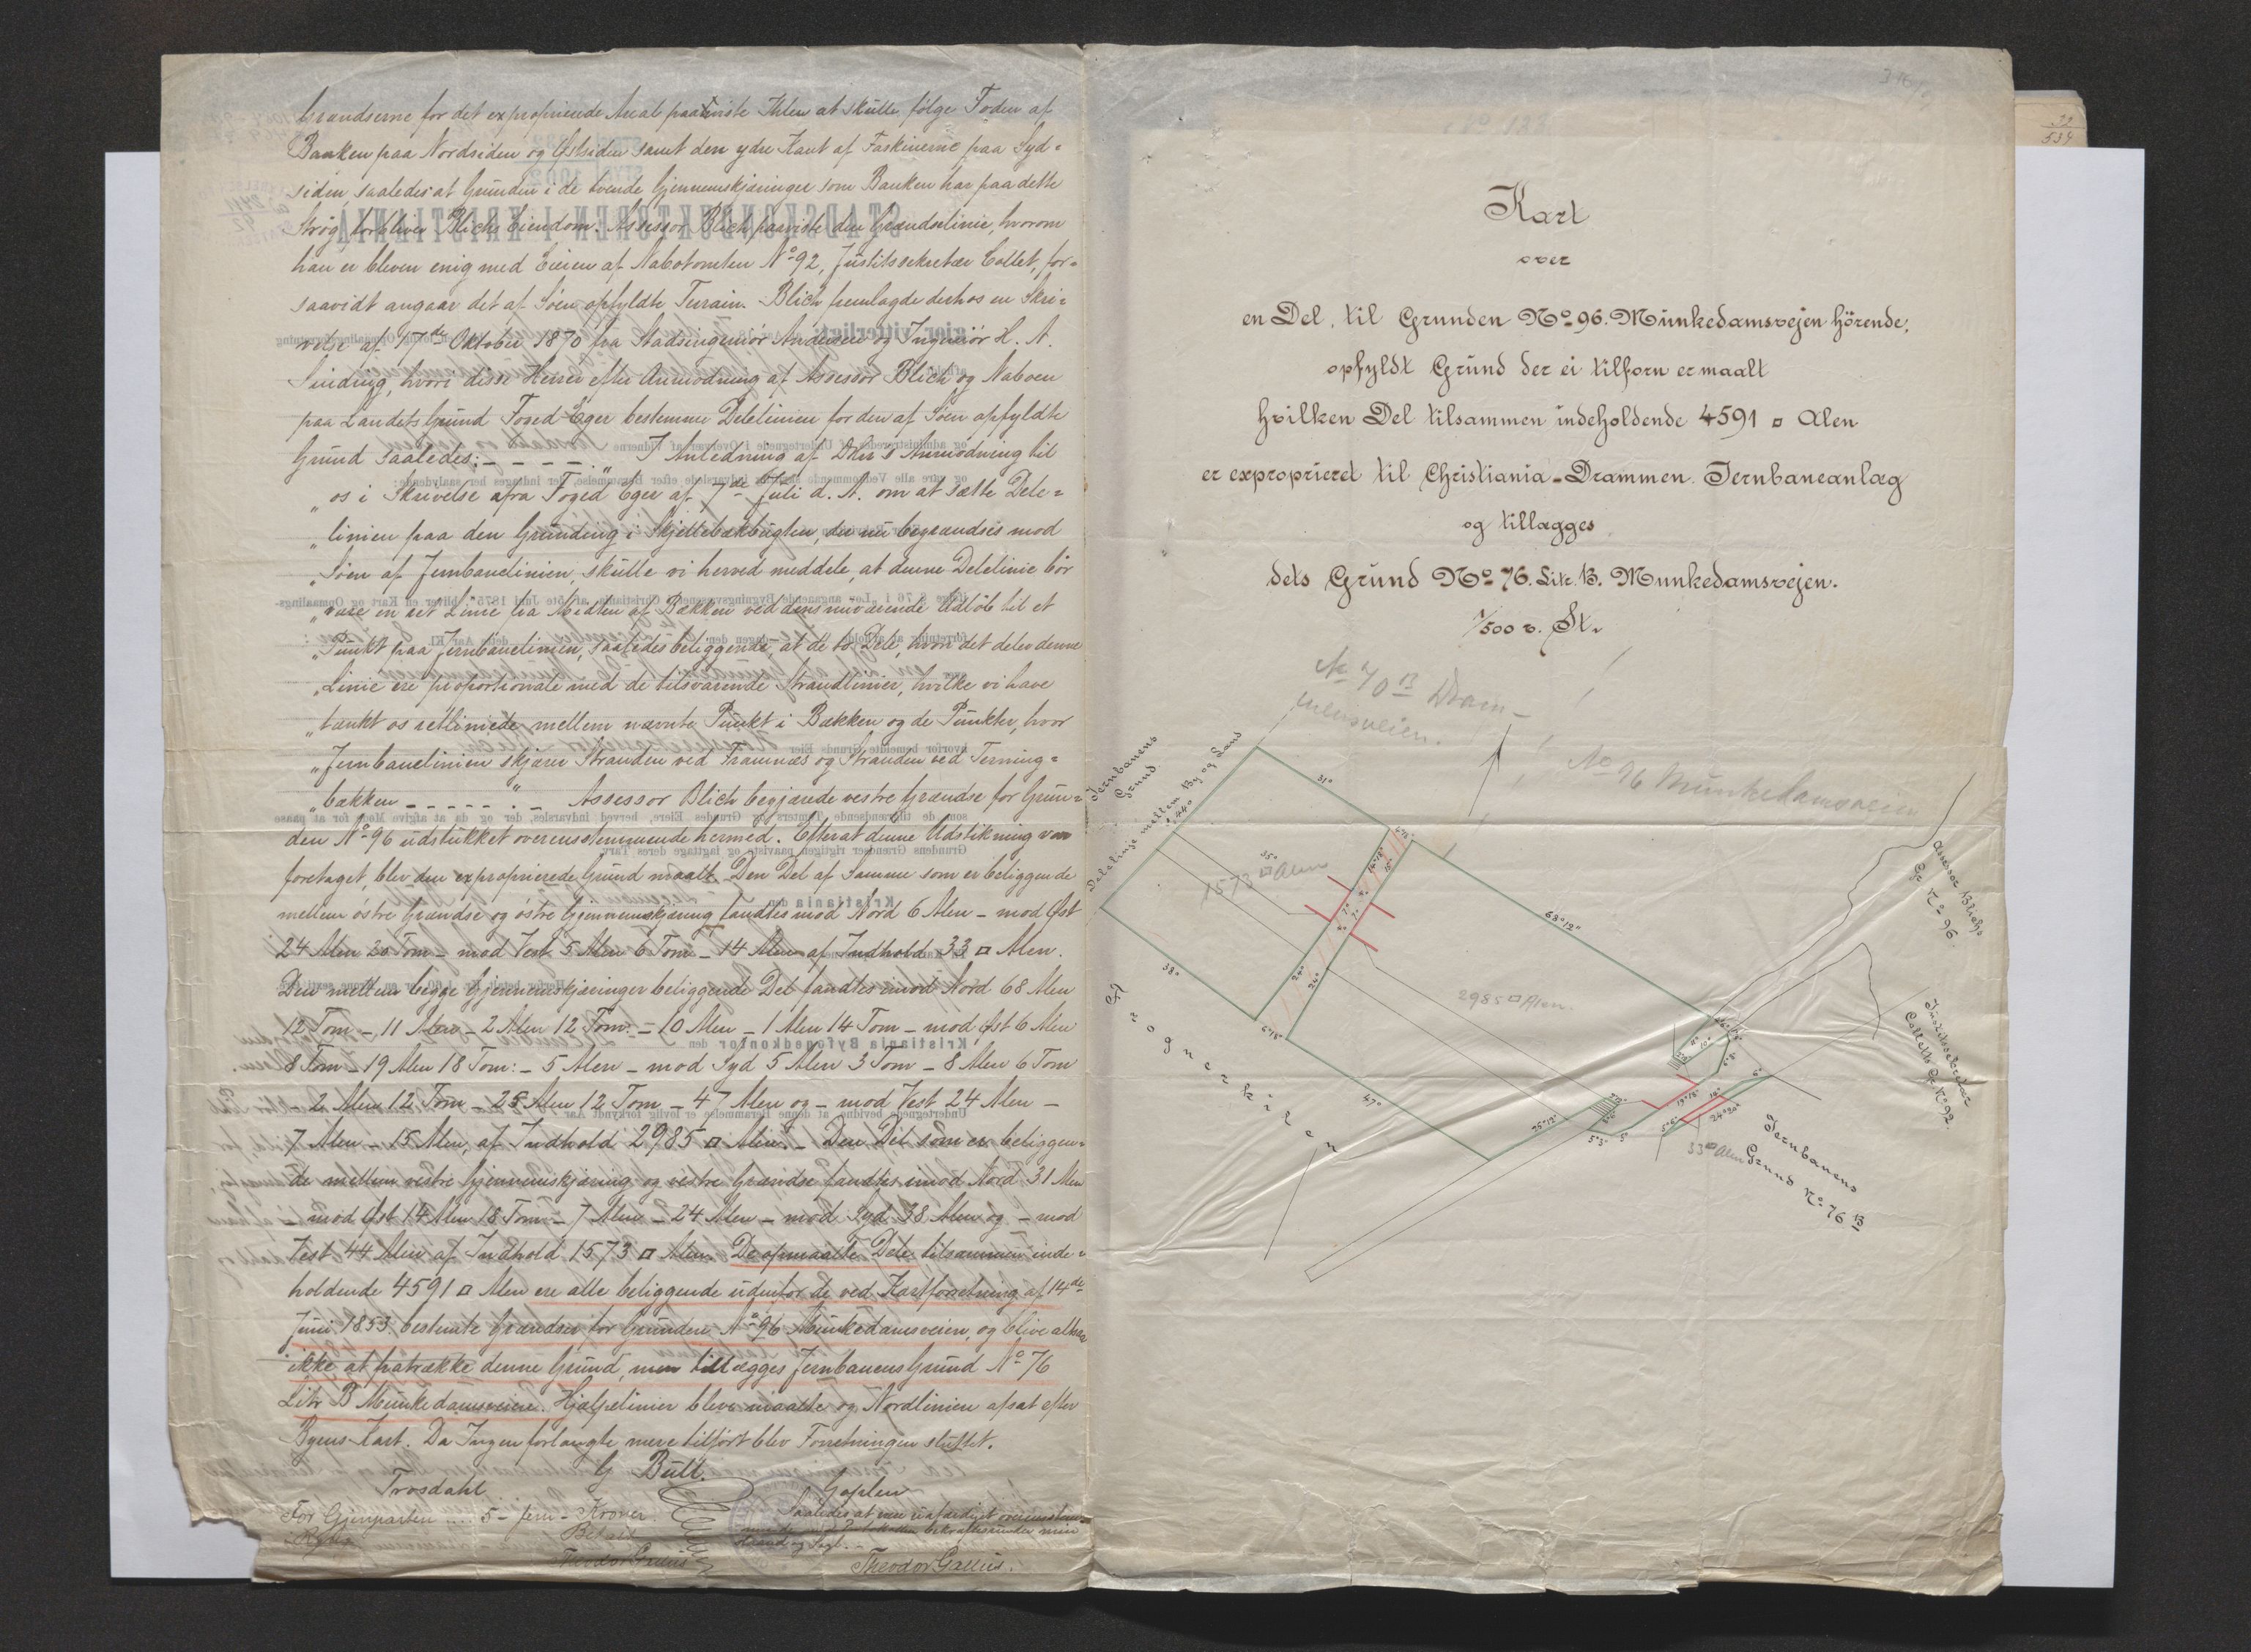 Grændserne for det exproprierede Areal paaviste Ihlen at skulle følge Foden af
Banken paa Nordsiden og Østsiden samt den ydre Kant af Faskinerne paa Syd-
siden, saaledes at Grunden i de tvende Gjennemskjæringer som Banken har paa dette
Strøg forbliver Blichs Eiendom. Assessor Blich paaviste den Grændselinie, hvorom
han er bleven enig med Eieren af Nabotomten No 92, Justitssekretær Collet, for-
saavidt angaar det af Søen opfyldte Terrain. Blich fremlagde derhos en Skri-
velse af 17de Oktober 1870 fra Stadsingeniør Andersen og Ingeniør H. A.
Sinding, hvori disse Herrer efter Anmodning af Assessor Blich og Naboen
paa Landets Grund Foged Eger bestemme Delelinien for den af Søen opfyldte
Grund saaledes: - - - - - " I Anledning af Deres Anmodning til
" os i Skrivelse fra Foged Eger af 7de Juli d. A. om at sætte Dele-
" linien paa den Grunding i Skjellebækbugten, der nu begrændses mod
" Søen af Jernbanelinien, skulle vi herved meddele, at denne Delelinie bør
" være en ret Linie fra Midten af Bækken ved dens nuværende Udløb til et
" Punkt paa Jernbanelinien, saaledes beliggende, at de to Dele, hvori det deler denne
" Linie ere proportionale med de tilsvarende Strandlinier, hvilke vi have
" tænkt os retliniede mellem nævnte Punkt i Bækken og de Punkter, hvor
" Jernbanelinien skjærer Stranden ved Framnæs og Stranden ved Terning-
" bækken - - - - - " - Assessor Blich begjærede vestre Grændse for Grun-
den No 96 udstukket overensstemmende hermed. Efterat denne Udstikning var
foretaget, blev den exproprierede Grund maalt. Den Del af Samme som er beliggende
mellem østre Grændse og østre Gjennemskjæring fandtes mod Nord 6 Alen - mod Øst
24 Alen 20 Tom - mod Vest 5 Alen 6 Tom - 14 Alen af Indhold 33 □ Alen.
Den mellem begge Gjennemskjæringer beliggende Del fandtes imod Nord 68 Alen
12 Tom - 11 Alen - 2 Alen 12 Tom - 10 Alen - 1 Alen 14 Tom - mod Øst 6 Alen
8 Tom - 19 Alen 18 Tom: - 5 Alen - mod Syd 5 Alen 3 Tom - 8 Alen 6 Tom
2 Alen 12 Tom - 25 Alen 12 Tom - 47 Alen og - mod Vest 24 Alen -
7 Alen - 15 Alen, af Indhold 2985 □ Alen. - Den Del som er beliggen-
de mellem vestre Gjennemskjæring og vestre Grændse fandtes imod Nord 31 Alen
- mod Øst 14 Alen 18 Tom - 7 Alen - 24 Alen - mod Syd 38 Alen og - mod
Vest 44 Alen af Indhold 1573 □ Alen. De opmaalte Dele tilsammen inde-
holdende 4591 □ Alen ere alle beliggende udenfor de ved Kartforretning af 14de
Juni 1853 bestemte Grændser for Grunden No 96 Munkedamsveien, og blive altsaa
ikke at fratrække denne Grund, men tillægges Jernbanens Grund No 76
Litr B Munkedamsveien. Hjælpelinier bleve maalte og Nordlinien afsat efter
Byens Kart. Da Ingen forlangte mere tilført blev Forretningen sluttet.
G Bull.
Trosdahl
Gaplen
For Gjenparten .... 5 - fem - Kroner.
Betalt
Theodor Gallus
Theodor Gallus.
Kart
over
en Del, til Grunden No 96. Munkedamsvejen hörende,
opfyldt Grund der ei tilforn er maalt
hvilken Del tilsammen indeholdende 4591 □ Alen
er exproprieret til Christiania-Drammen Jernbaneanlæg
og tillægges
dets Grund No 76. Litr. B. Munkedamsvejen.
1/500 v. St.
No 70 B Dram-
mensveien.
No 96 Munkedamsveien
Jernbanens
Grund
Delelinje mellem By og Land
44°
31°
35°
1573 □ Alen
38°
24°
24°
68°12"
2985 □ Alen.
47°
25°12"
Frognerkilen
Assessor Blichs
Gr No 96.
Justitssekretær
Collets Gr No 92.
19°18"
14°
24°20"
5°6"
5°3"
33 □ Alen
Jernbanens
Grund No 76 B